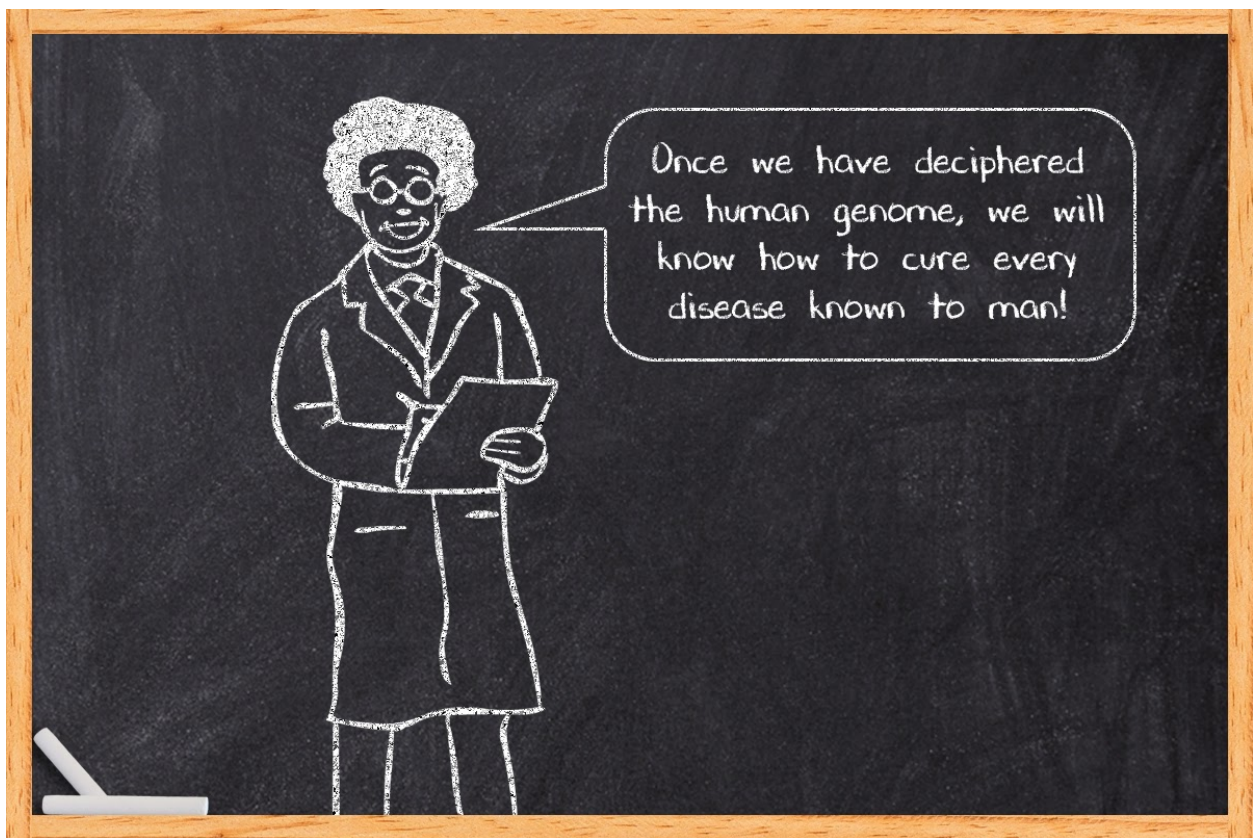 Once we have deciphered
the human genome, we will
know how to cure every
disease known to man!